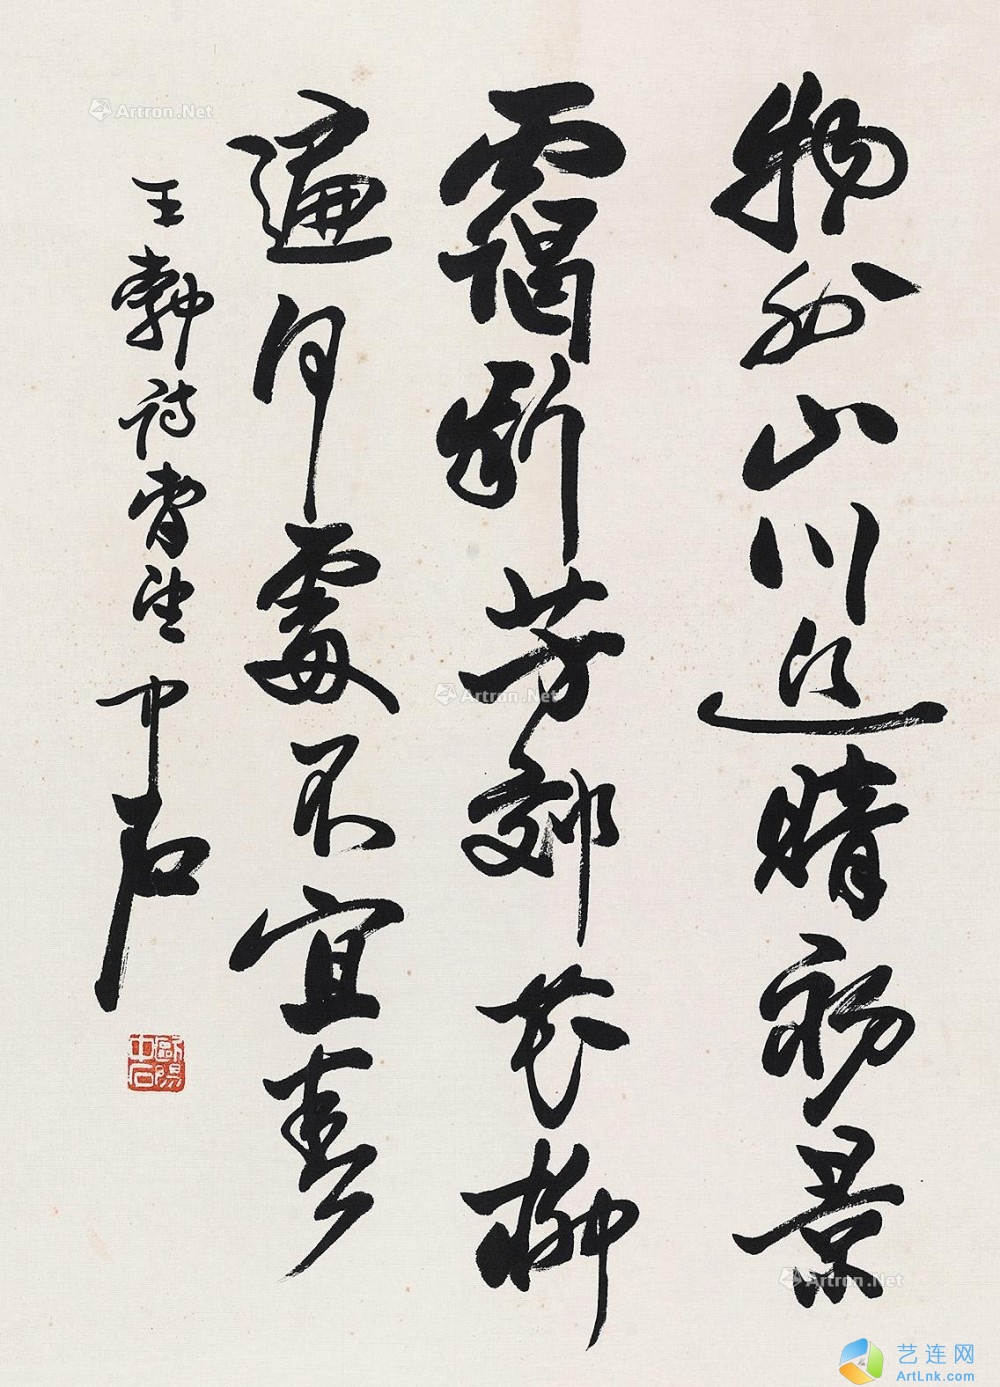 物外山川近晴初景
靄新芳郊花柳
遍何處不宜春
王勃詩春望 中石
歐陽中石
Artron.Net
Artron.Net
Artron.Net
艺连网
ArtLnk.com